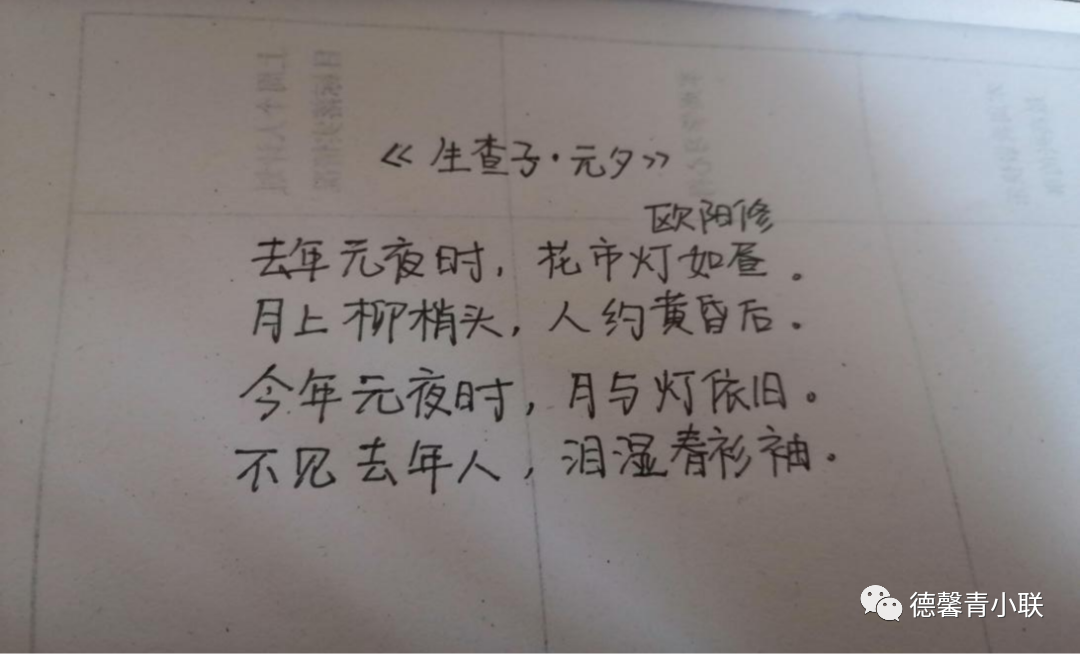 《生查子·元夕》
欧阳修
去年元夜时，花市灯如昼。
月上柳梢头，人约黄昏后。
今年元夜时，月与灯依旧。
不见去年人，泪湿春衫袖。
德馨青小联